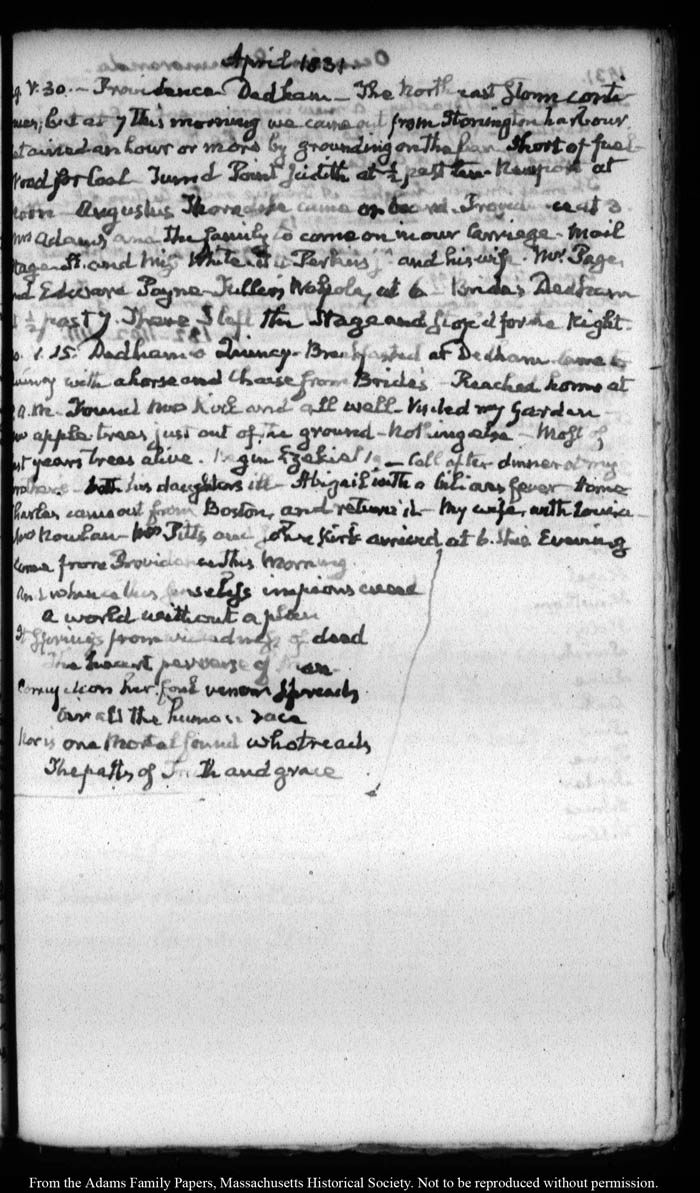 April 1831
V. 30. - Providence Dedham - The North east Storm conti
nues; but at 7 this morning we came out from Stonington harbour.
etained an hour or more by grounding on the bar. Short of fuel
Wood for Coal. Turn'd Point Judith at ½ past ten. Newport at
noon - Augustus Thorndike came on board. Providence at 3
Mrs Adams and the family to come on in our Carriage. Mail
tage and White Perkins and his wife. Mr Page,
nd Edward Payne. Fullers Walpole, at 6 Dedham
½ past 7. There I left the Stage and stop'd for the Night.
1. 15. Dedham Quincy. Breakfasted at Dedham came to
uincy with a horse and Chaise from Brides - Reached home at
A.M. Found Mrs Kirk and all well. Visited my Garden
apple trees just out of the ground - Nothing else - Most of
st years trees alive. Begin Ezekiel 19 - Call after dinner at my
brothers both his daughters ill - Abigail with a bilious fever
harles came out from Boston, and return'd - My wife, with Louisa
Mrs Nowlan Mrs Pitts and John Kirk arrived at 6. this Evening
Came from Providence this Morning
And whence this senseless impious creed
a world without a plan
It springs from wickedness of deed
The heart perverse of Man
Corruption her foul venom spreads
O'er all the human race
Nor is one Mortal found who treads
The paths of Truth and grace
From the Adams Family Papers, Massachusetts Historical Society. Not to be reproduced without permission.